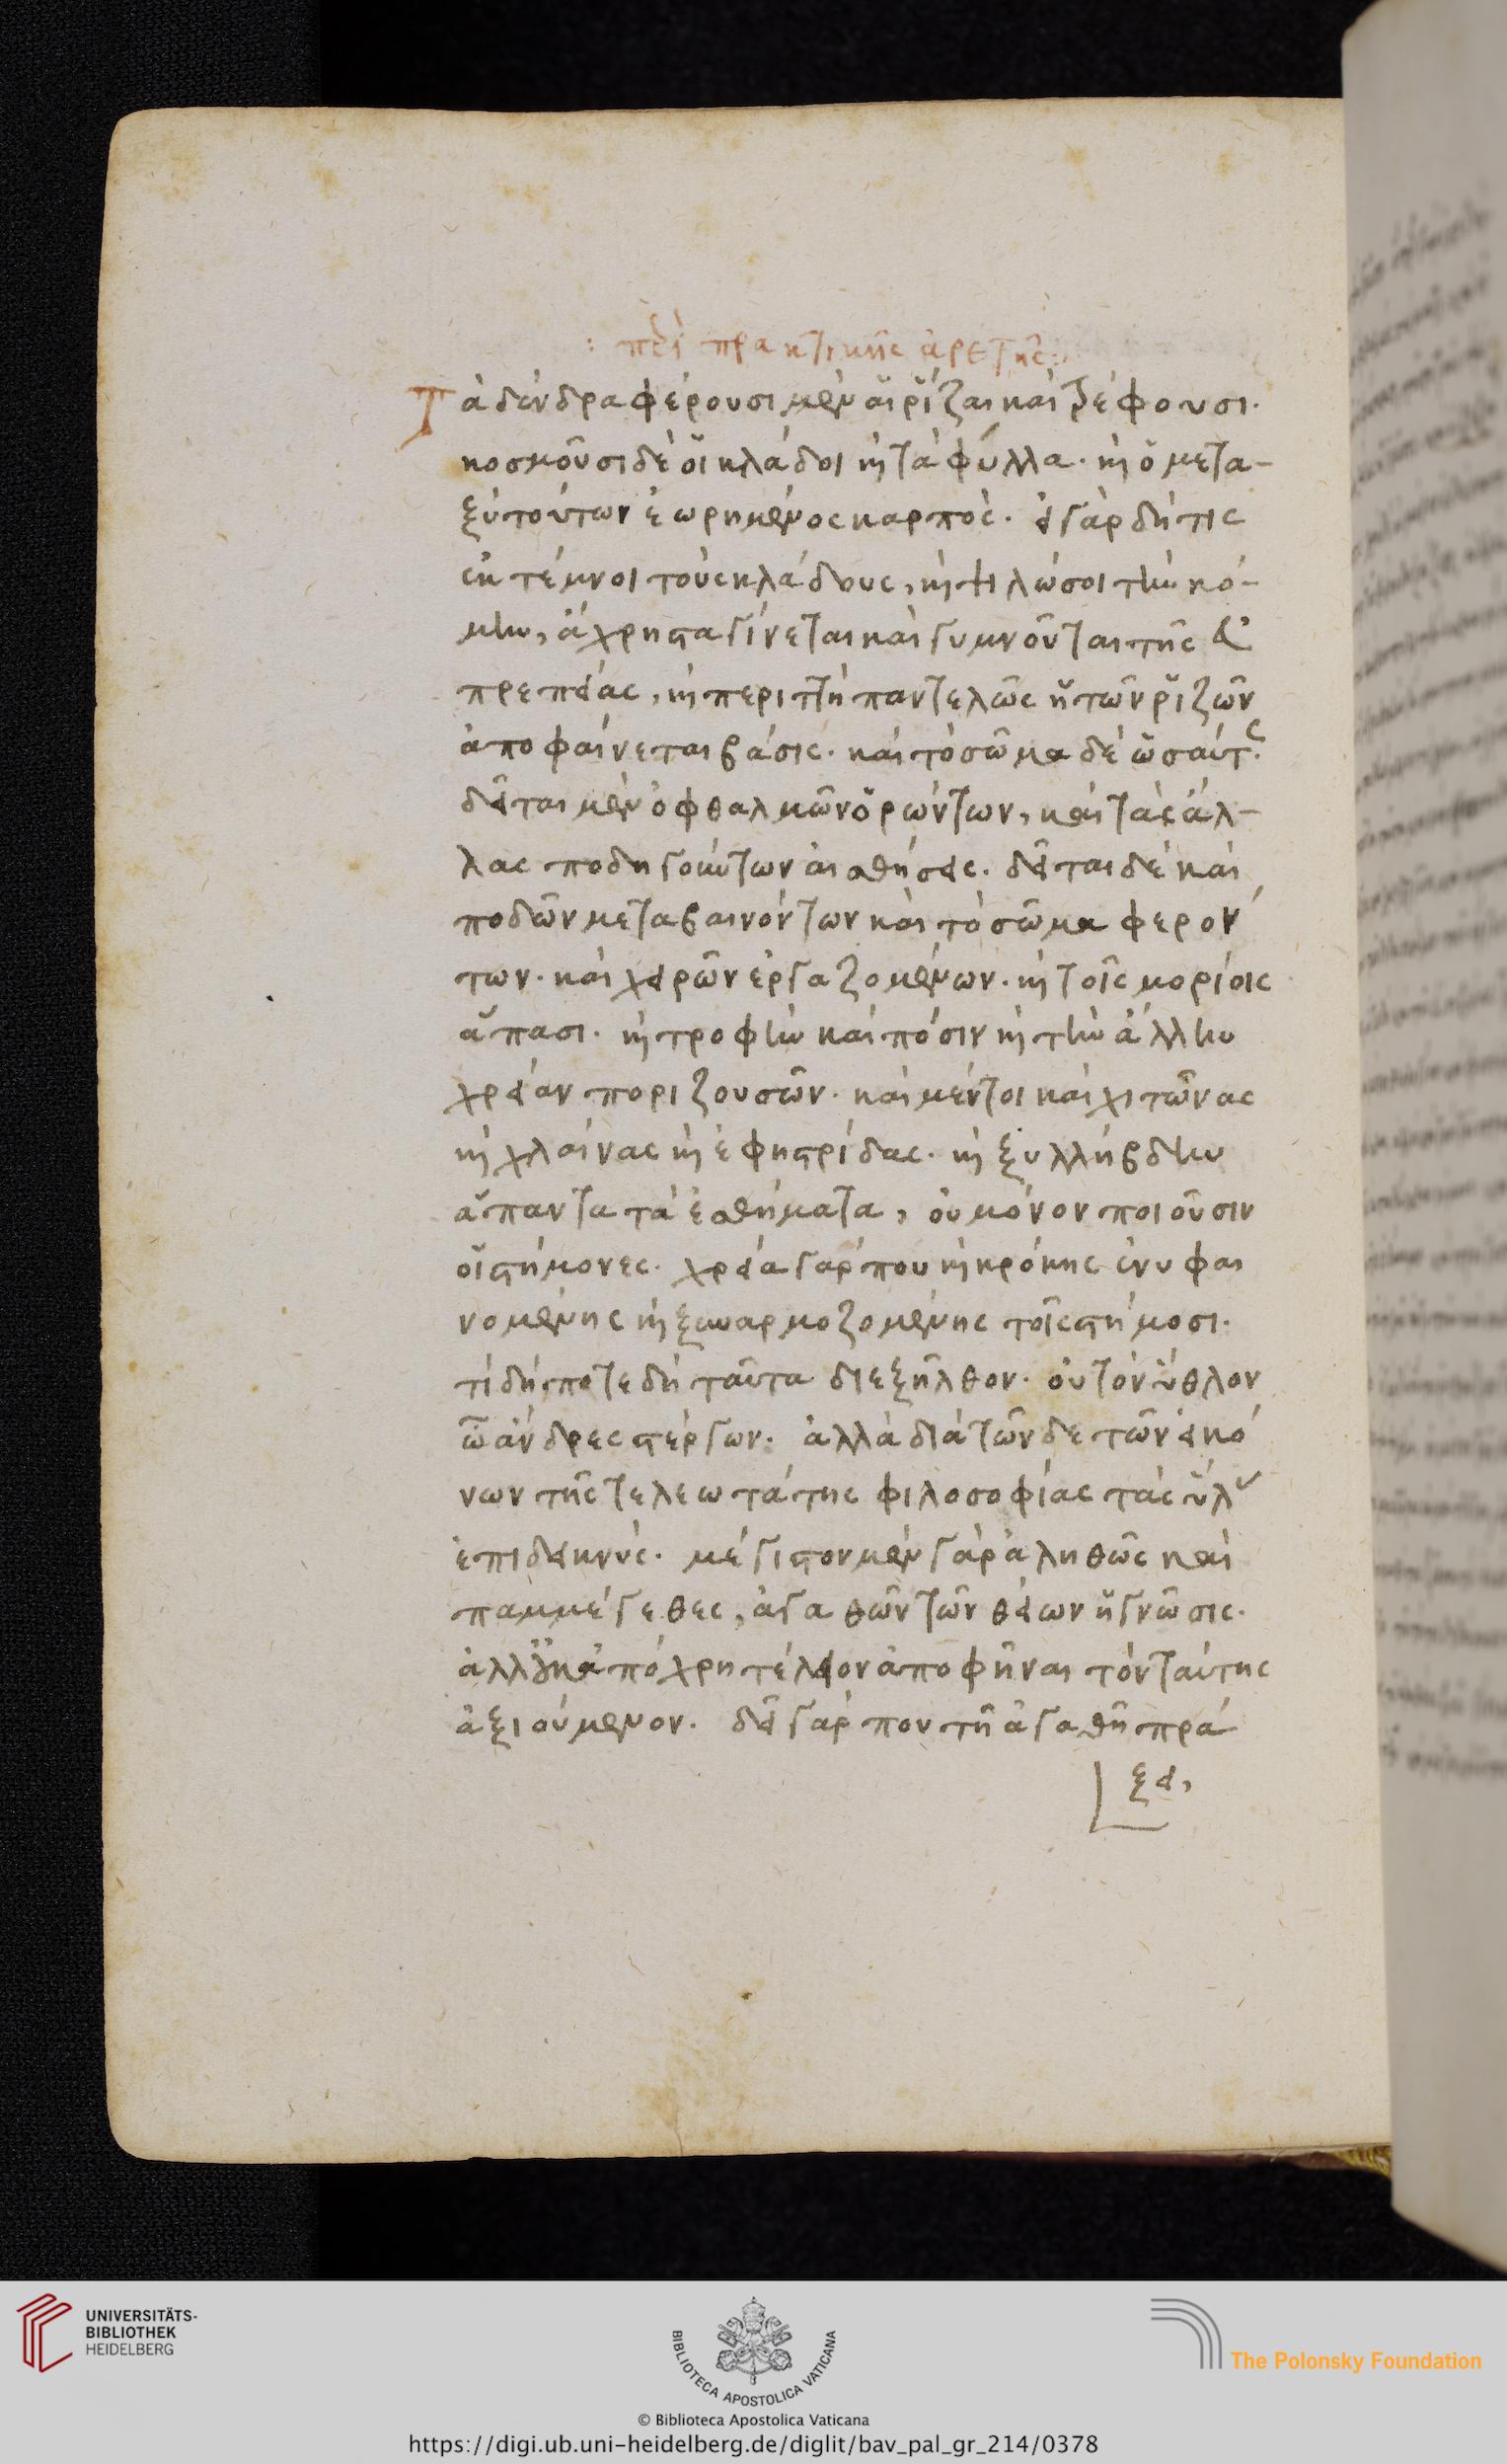 : περὶ πρακτικῆς ἀρετῆς :
Τὰ δένδρα φέρουσι μὲν αἱ ῥίζαι καὶ τρέφουσι·
κοσμοῦσι δὲ οἱ κλάδοι κὴ τὰ φύλλα· κὴ ὁ μετα-
ξὺ τούτων ἐωρημένος καρπός· εἰ γὰρ δή τις
ἐκτέμνοι τοὺς κλάδους, κὴ ψιλώσοι τὴν κό-
μην, ἄχρηστα γίνεται καὶ γυμνοῦνται τῆς εὐ
πρεπείας, κὴ περιττὴ παντελῶς ἡ τῶν ῥιζῶν
ἀποφαίνεται βάσις· καὶ τὸ σῶμα δὲ ὡσαύτως·
δεῖται μὲν ὀφθαλμῶν ὁρώντων, καὶ τὰς ἄλ-
λας ποδηγούντων αἰσθήσεις· δεῖται δὲ καὶ
ποδῶν μεταβαινόντων καὶ τὸ σῶμα φερόν
των· καὶ χειρῶν ἐργαζομένων· κὴ τοῖς μορίοις
ἅπασι· κὴ τροφὴν καὶ πόσιν κὴ τὴν ἄλλην
χρείαν ποριζουσῶν· καὶ μέντοι καὶ χιτῶνας
κὴ χλαίνας κὴ ἐφηστρίδας· κὴ ξυλλήβδην
ἅπαντα τὰ ἐσθήματα, οὐ μόνον ποιοῦσιν
οἱ στήμονες· χρεία γάρ που κὴ κρόκης ἐνυφαι
νομένης κὴ ξυναρμοζομένης τοῖς στήμοσι·
τί δήποτε δὴ ταῦτα διεξῆλθον· οὐ τὸν ὕθλον
ὦ ἄνδρες στέργων· ἀλλὰ διὰ τῶνδε τῶν εἰκό
νων τῆς τελεωτάτης φιλοσοφίας τὰς ὕλας
ἐπιδεικνύς· μέγιστον μὲν γὰρ ἀληθῶς καὶ
παμμέγεθες, ἀγαθῶν τῶν θείων ἡ γνῶσις·
ἀλλ' οὐκ ἀπόχρη τέλειον ἀποφῆναι τὸν ταύτης
ἀξιούμενον· δεῖ γάρ που τῇ ἀγαθῇ πρά
ξει,
UNIVERSITÄTS-
BIBLIOTHEK
HEIDELBERG
BIBLIOTECA APOSTOLICA VATICANA
The Polonsky Foundation
© Biblioteca Apostolica Vaticana
https://digi.ub.uni-heidelberg.de/diglit/bav_pal_gr_214/0378